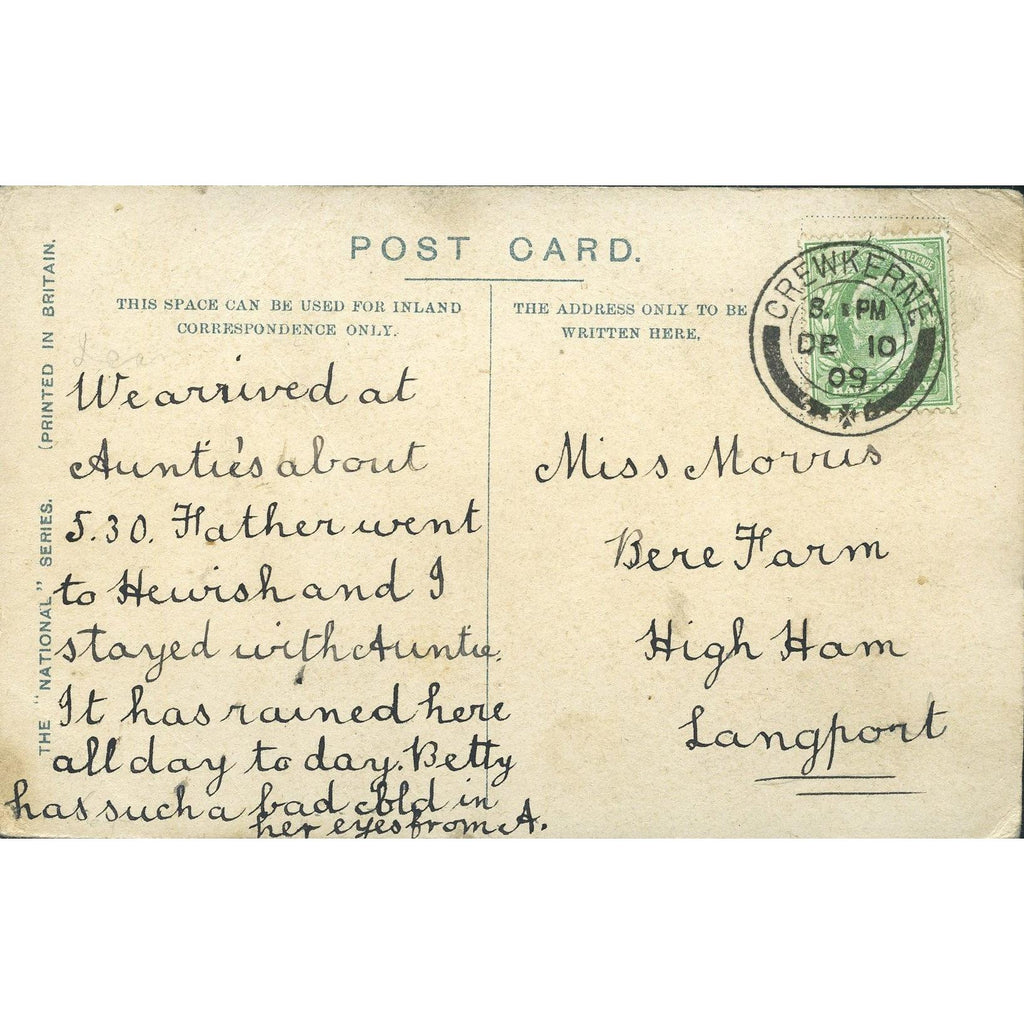 POST CARD.
THIS SPACE CAN BE USED FOR INLAND
CORRESPONDENCE ONLY.
THE ADDRESS ONLY TO BE
WRITTEN HERE.
THE "NATIONAL" SERIES.
(PRINTED IN BRITAIN.
CREWKERNE
8. PM
DE 10
09
REVENUE
We arrived at
Auntie's about
5.30. Father went
to Hewish and I
stayed with Auntie.
It has rained here
all day to day. Betty
has such a bad cold in
her eyes from A.
Miss Morris
Bere Farm
High Ham
Langport